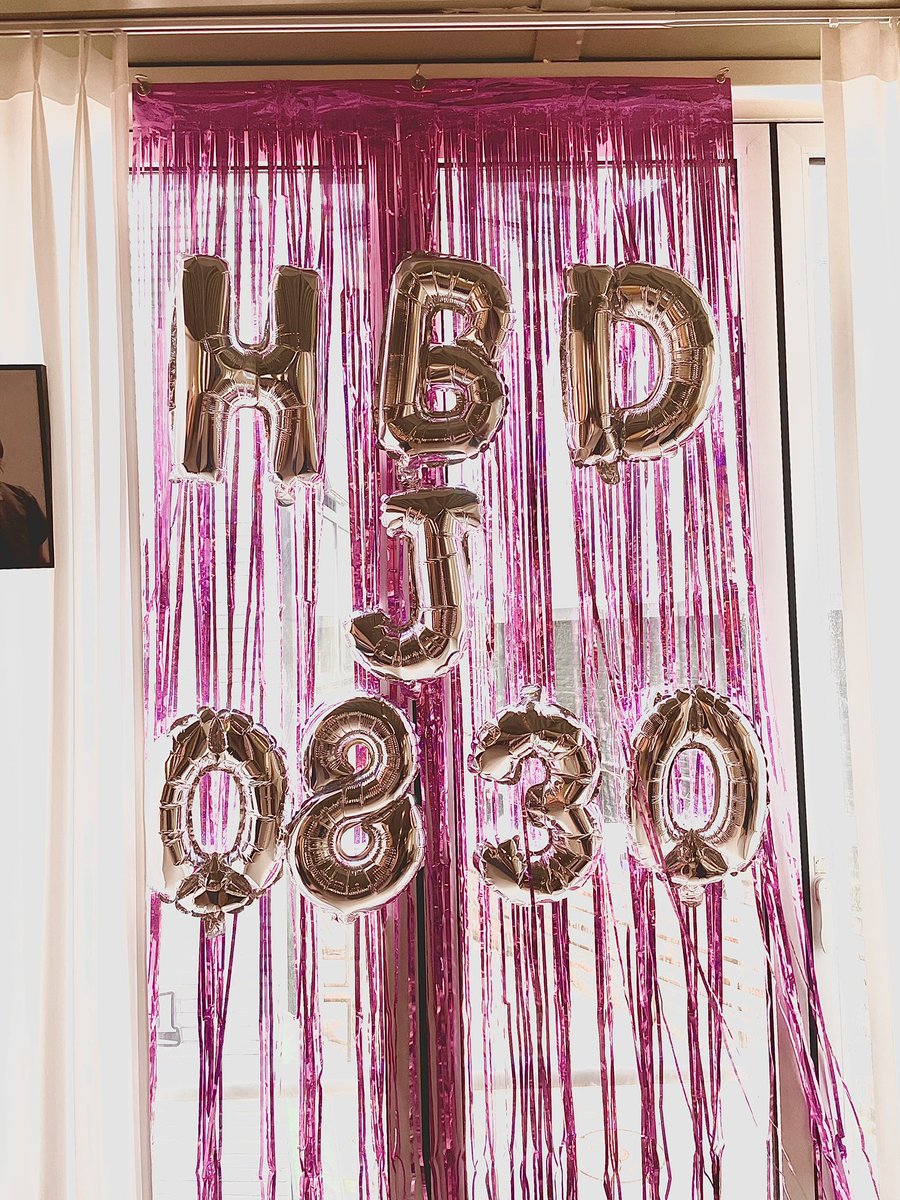 HBD
J
0830